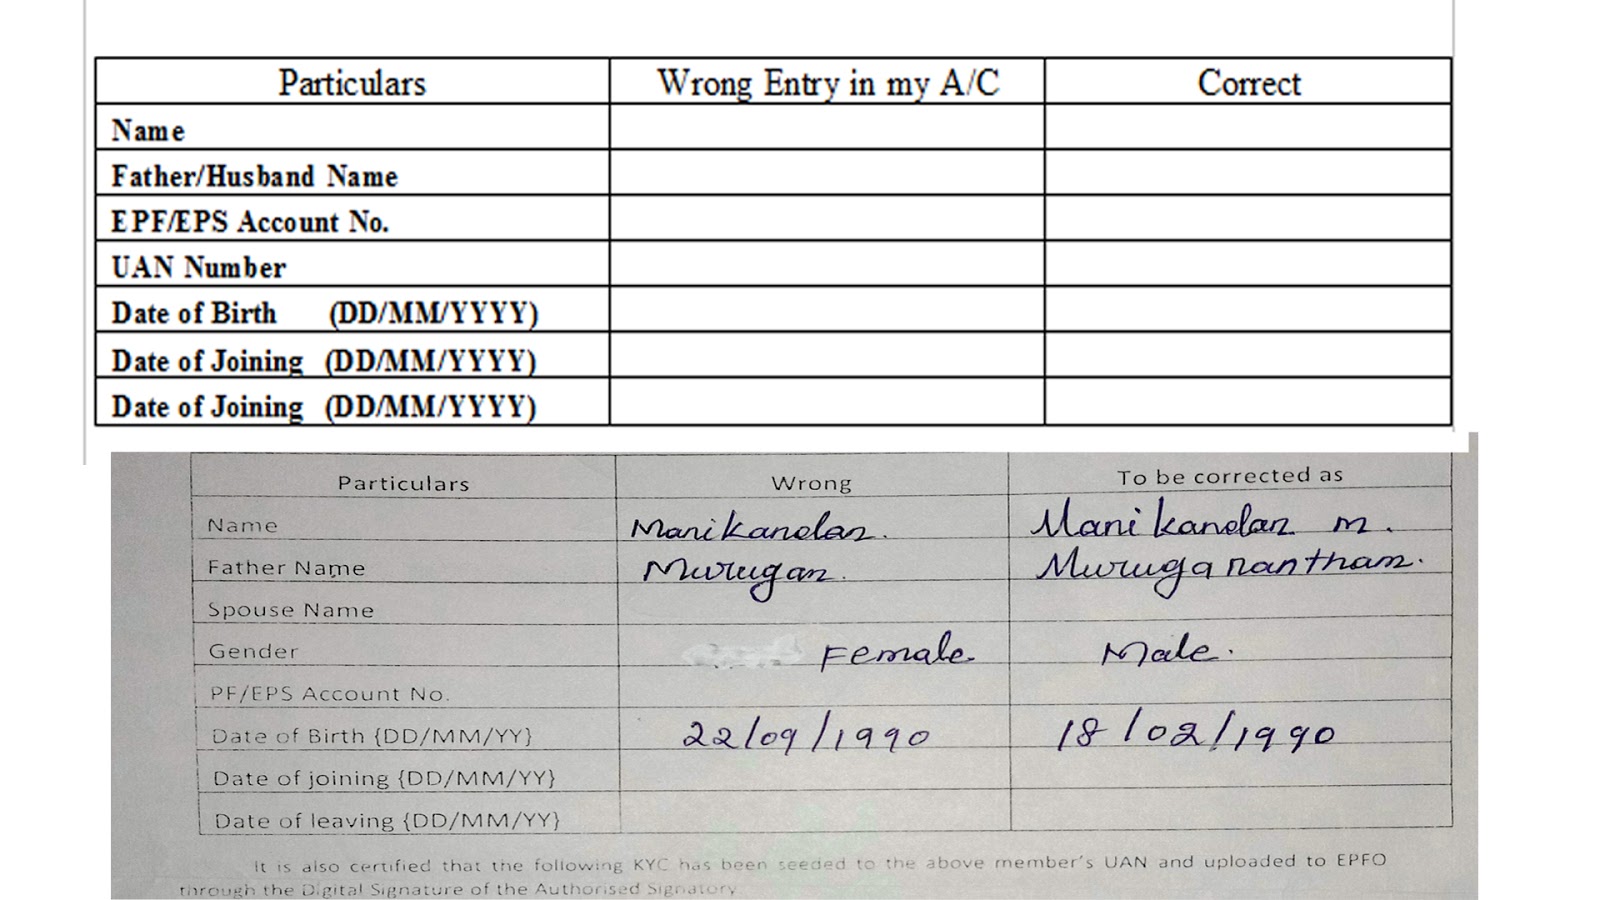 Particulars Wrong Entry in my A/C Correct
Name
Father/Husband Name
EPF/EPS Account No.
UAN Number
Date of Birth (DD/MM/YYYY)
Date of Joining (DD/MM/YYYY)
Date of Joining (DD/MM/YYYY)
Particulars Wrong To be corrected as
Name Manikandan. Manikandan M.
Father Name Murugan. Muruganantham.
Spouse Name
Gender Female Male.
PF/EPS Account No.
Date of Birth {DD/MM/YY} 22/09/1990 18/02/1990
Date of joining {DD/MM/YY}
Date of leaving {DD/MM/YY}
It is also certified that the following KYC has been seeded to the above member's UAN and uploaded to EPFO
through the Digital Signature of the Authorised Signatory